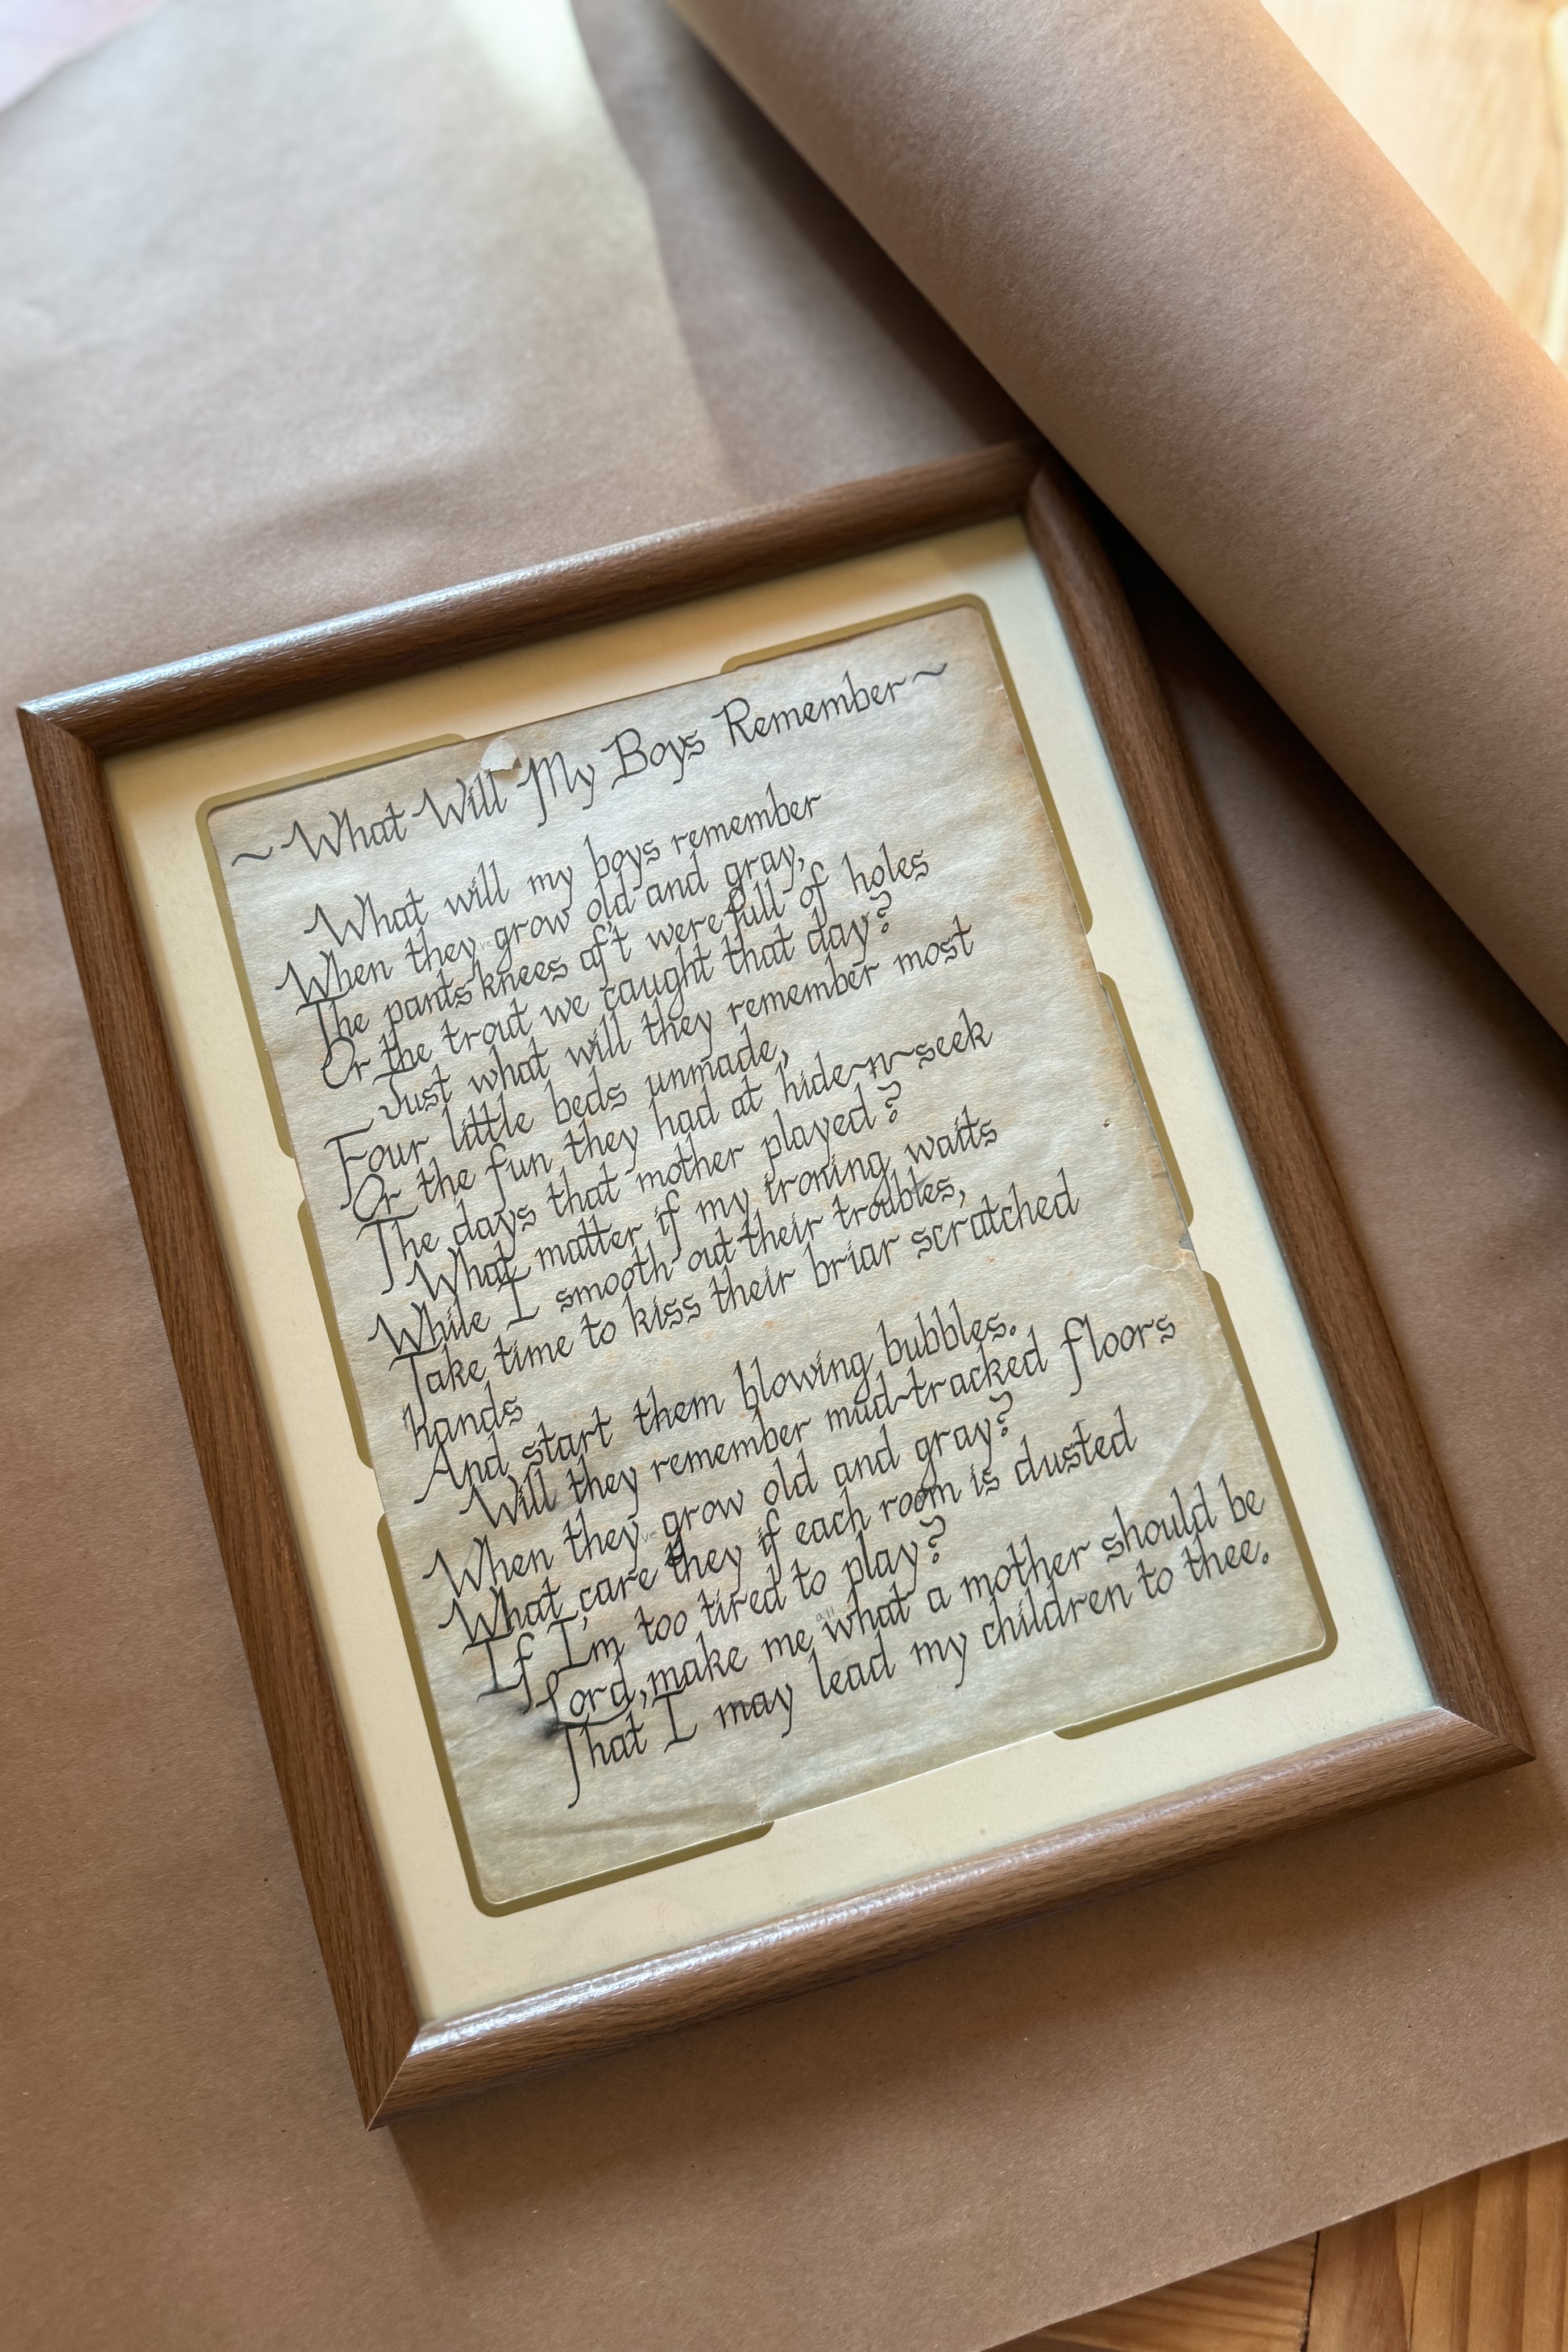 ~ What Will My Boys Remember ~
What will my boys remember
When they've grow old and gray,
The pants knees oft were full of holes
Or the trout we caught that day?
Just what will they remember most
Four little beds unmade,
Or the fun they had at hide-n-seek
The days that mother played?
What matter if my ironing waits
While I smooth out their troubles,
Take time to kiss their briar scratched
hands
And start them blowing bubbles.
Will they remember mud-tracked floors
When they've grow old and gray?
What care they if each room is dusted
If I'm too tired to play?
Lord, make me all what a mother should be
That I may lead my children to thee.